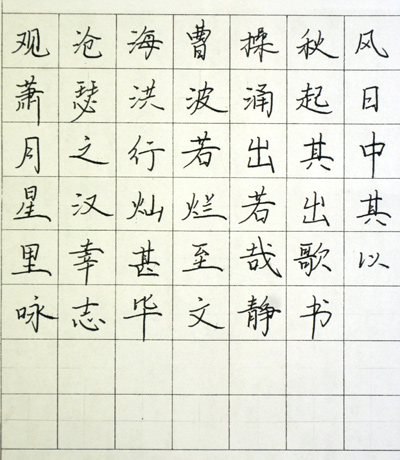 观沧海曹操秋风
萧瑟洪波涌起日
月之行若出其中
星汉灿烂若出其
里幸甚至哉歌以
咏志毕文静书